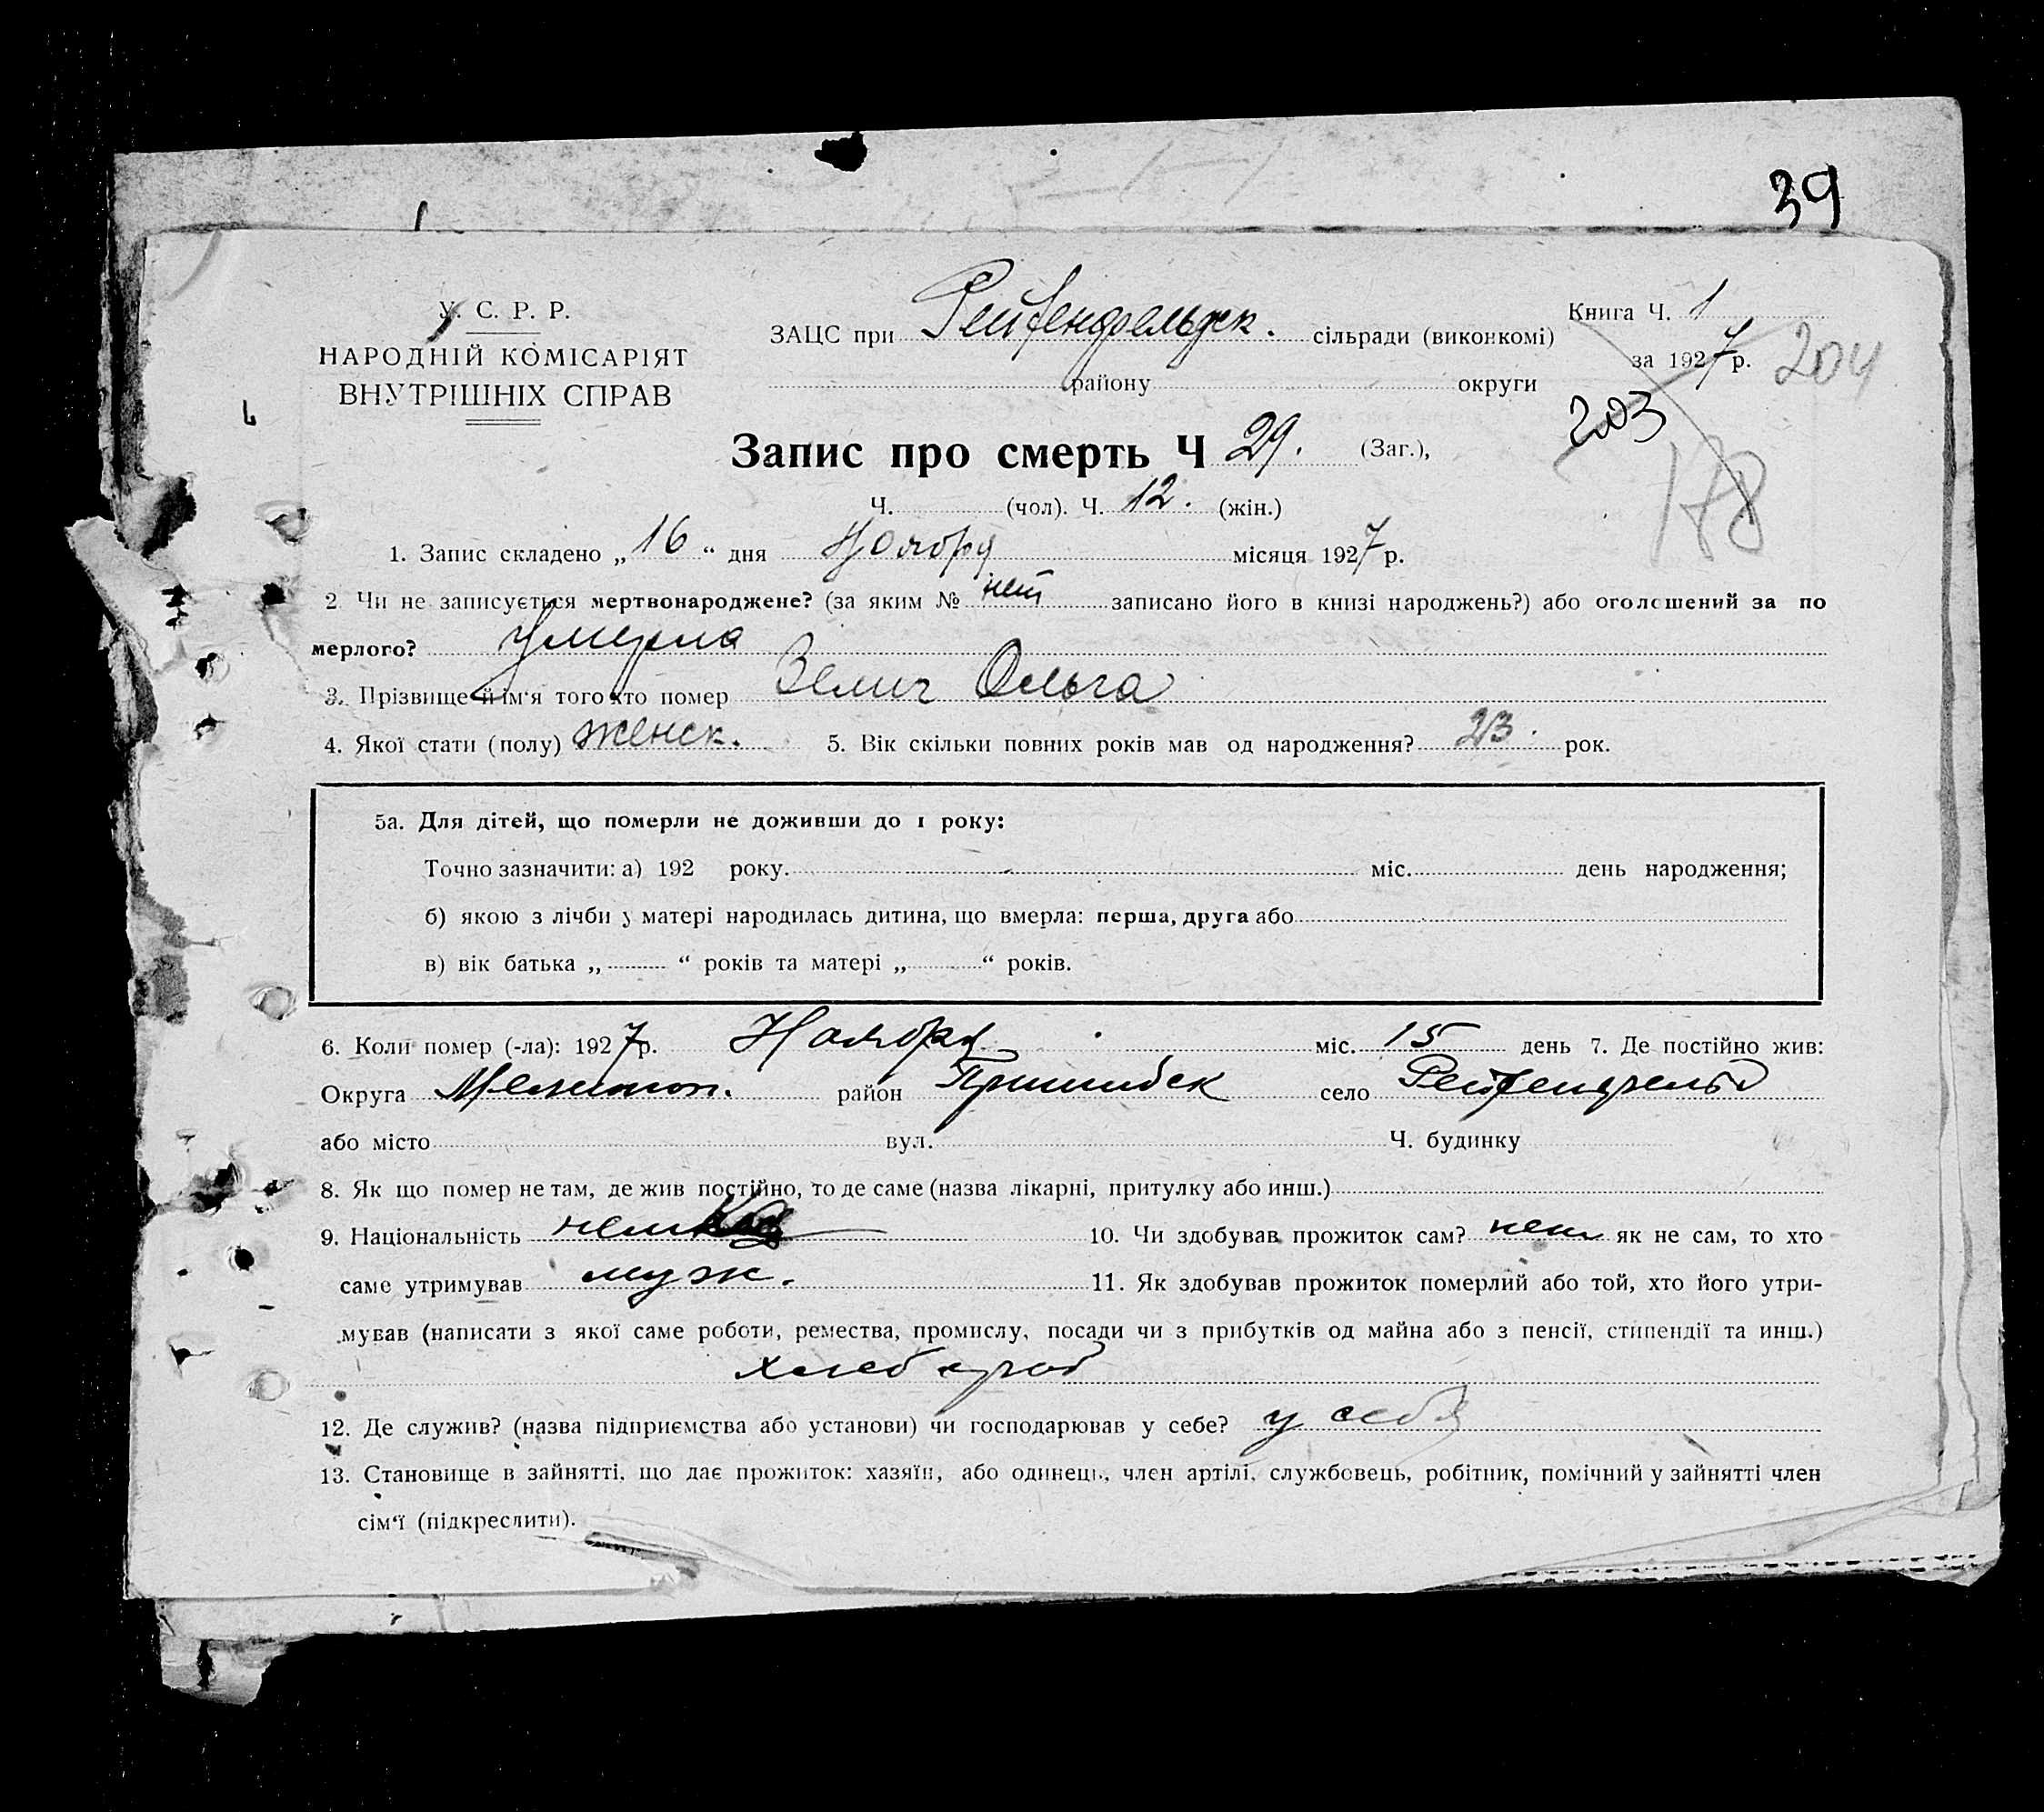 39
У. С. Р. Р.
НАРОДНІЙ КОМІСАРІЯТ
ВНУТРІШНІХ СПРАВ
ЗАЦС при Рейхенфельдск. сільради (виконкомі)
району округи
Книга Ч. 1
за 1927 р. 204
203
178
Запис про смерть Ч 29. (Заг.),
Ч. (чол). Ч. 12. (жін.)
1. Запис складено „16“ дня Ноября місяця 1927 р.
2 Чи не записується мертвонароджене? (за яким № нет записано його в книзі народжень?) або оголошений за по
мерлого? Умерла
3. Прізвище й ім'я того хто помер Ольга
4. Якої стати (полу) женск. 5. Вік скільки повних років мав од народження? 23. рок.
5а. Для дітей, що померли не доживши до 1 року:
Точно зазначити: а) 192 року. міс. день народження;
б) якою з лічби у матері народилась дитина, що вмерла: перша, друга або
в) вік батька „ “ років та матері „ “ років.
6. Коли помер (-ла): 1927 р. Ноября міс. 15 день 7. Де постійно жив:
Округа Мелитоп. район Пришибск село Рейхенфельд
або місто вул. Ч. будинку
8. Як що помер не там, де жив постійно, то де саме (назва лікарні, притулку або инш.)
9. Національність немка 10. Чи здобував прожиток сам? нет як не сам, то хто
саме утримував муж. 11. Як здобував прожиток померлий або той, хто його утри-
мував (написати з якої саме роботи, ремества, промислу, посади чи з прибутків од майна або з пенсії, стипендії та инш.)
хлебороб
12. Де служив? (назва підприємства або установи) чи господарював у себе? у себя
13. Становище в зайнятті, що дає прожиток: хазяїн, або одинець, член артілі, службовець, робітник, помічний у зайнятті член
сім'ї (підкреслити).